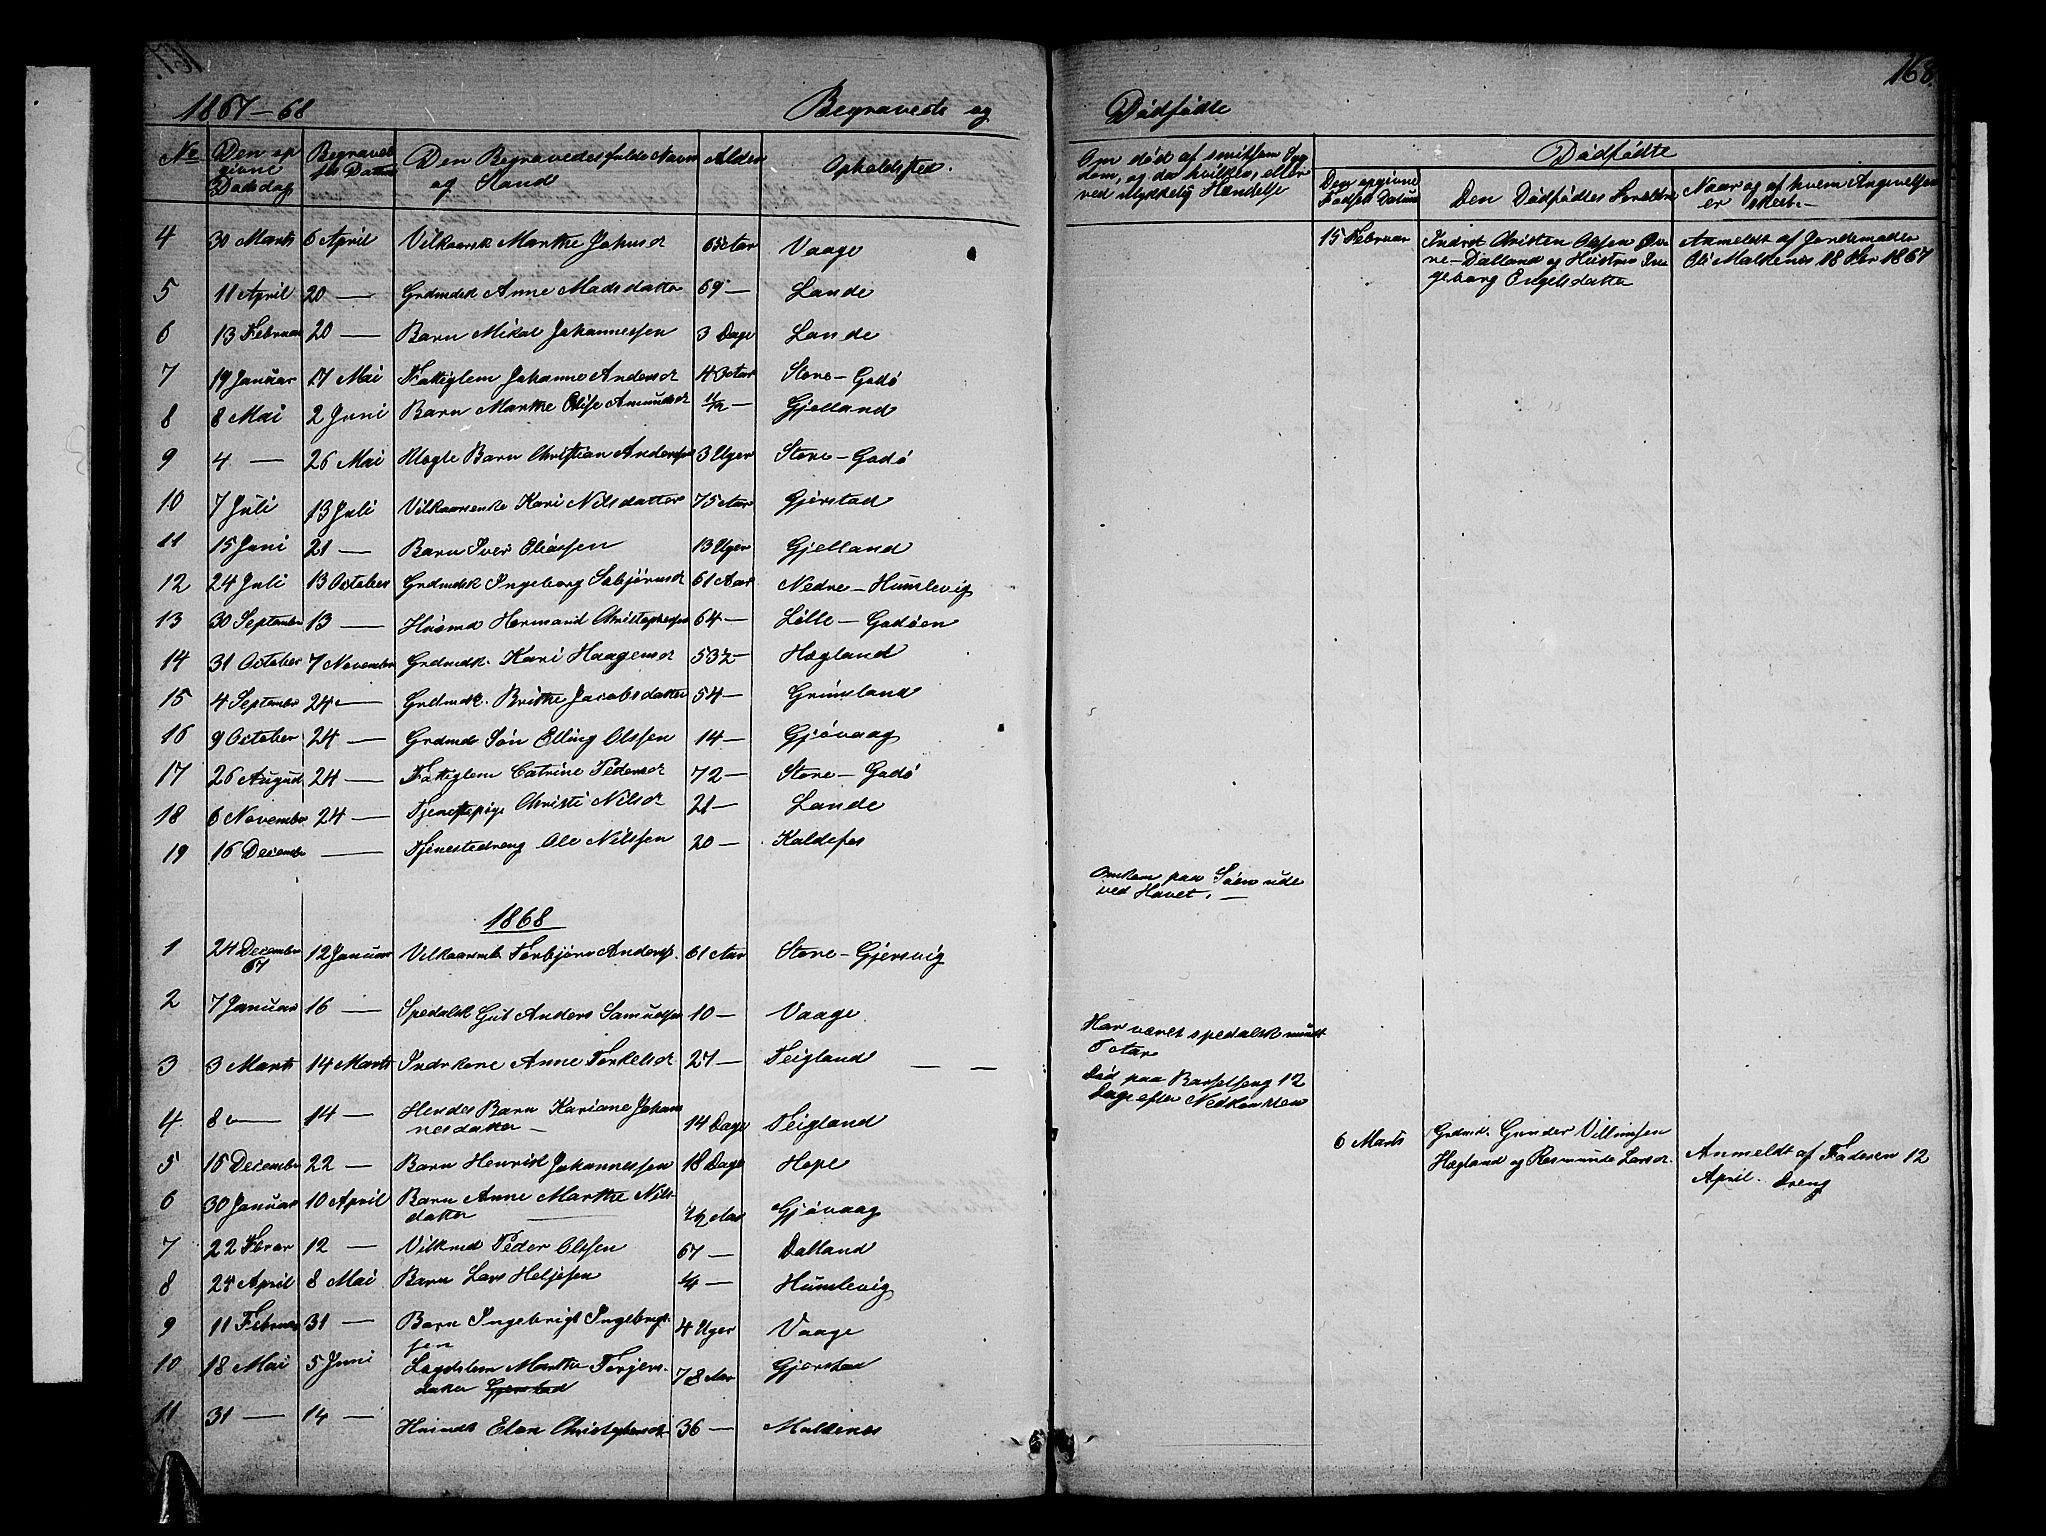 168.
1867-68 Begravede og Dødfødte
No Den opgivne Dødsdag Begravelses Datum Den Begravedes fulde Navn og Stand Alder Opholdssted.
Om død af smitsom Sygdom, og da hvilken, eller ved ulykkelig Hændelse
Dødfødte
Den opgivne Fødsels Datum Den Dødfødtes Forældre Naar og af hvem Angivelsen er skeet
4 30 Marts 6 April Vilkaarsk Marthe Johnsd 65 Aar Vaage
15 Februar Indrst Christen Olsen Øvre-Dalland og Hustru Ingeborg Engelsdatter Anmeldt af Jordemoder Oli Maldenes 18 Febr 1867
5 11 April 20 — Grdmdsk Anne Madsdatter 69 — Lande
6 13 Februar 20 — Barn Mikal Johannessen 3 Dage Lande
7 19 Januar 17 Mai Fattiglem Johanne Andersd Store-Godø
8 8 Mai 2 Juni Barn Marthe Olise Amundsd 1 1/2 — Gjelland
9 4 — 26 Mai Uægte Barn Christian Anderssen 3 Uger Store-Godø
10 7 Juli 13 Juli Vilkaarsenke Kari Nilsdatter 75 Aar Gjerstad
11 15 Juni 21 — Barn Iver Eliassen 13 Uger Gjelland
12 24 Juli 13 October Grdmdsk Ingeborg Sebjørnsd 61 Aar Nedre-Humlevig
13 30 September 13 — Huusmd Hermand Christophersen 64 — Lille-Godøen
14 31 October 7 November Grdmdsk. Kari Haagensd 53 1/2 — Hægland
15 4 September 24 — Grdmdsk. Brithe Jacobsdatter 54 — Grimsland
16 9 October 24 — Grdmds Søn Elling Olssen 14 — Gjøvaag
17 26 August 24 — Fattiglem Catrine Pedersd 72 — Store-Godø
18 6 November 24 — Tjenestepige Christi Nilsd 21 — Lande
19 16 Decembr — Tjenestedreng Ole Nilssen 20 — Kaldefos
Omkom paa Søen ude ved Havet.
1868
1 24 December 67 12 Januar Vilkaarsmd Torbjørn Anders. 61 Aar Store-Gjersvig
2 7 Januar 16 — Spedalsk Gut Anders Samuelsen 10 — Vaage
Har været spedalsk mindst Aar
3 3 Marts 14 Marts Indrkone Anne Torkelsd 27 — Teigland
Død paa Barselseng 12 Dage efter Nedkomsten
4 8 — 14 — Hendes Barn Kariane Johannesdatter 14 Dage Teigland
6 Marts Grdmd. Gunder Villumsen Hægland og Rasmunde Larsd. Anmeldt af Faderen 12 April. Dreng
5 16 December 22 — Barn Henrik Johannessen 18 Dage Hope
6 30 Januar 10 April Barn Anne Marthe Nilsdatter 1/2 Aar Gjøvaag
7 22 Febrar 12 — Vilkmd Peder Olssen 67 — Dalland
8 24 April 8 Mai Barn Lars Heljesen 1/4 — Humlevig
9 11 Februar 31 — Barn Ingebrigt Ingebrigtsen 4 Uger Vaage
10 18 Mai 5 Juni Lægdslem Marthe Torjersdatter 78 Aar Gjerstad
11 31 — 14 — Huusmdsk Elen Christophersd 36 — Maldenes